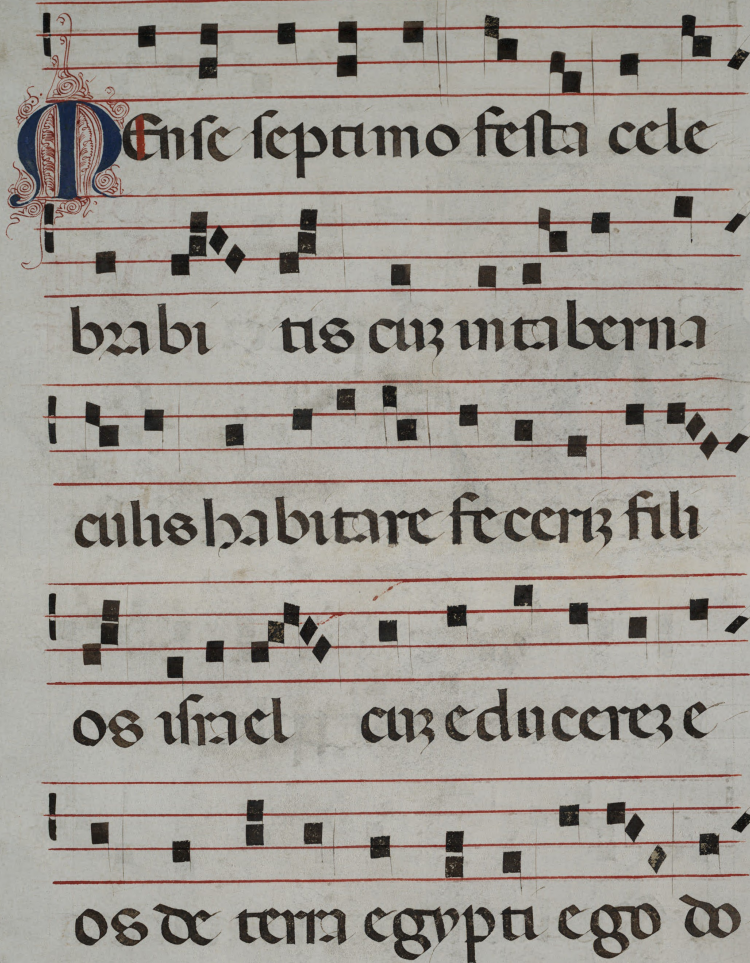 Mense septimo festa cele
brabi tis cuz in taberna
culis habitare feceriz fili
os israel cuz educerez e
os de terra egypti ego do